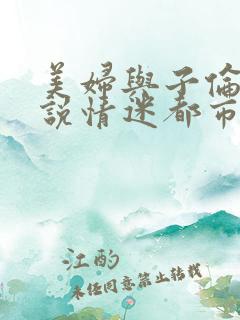 美婦與子倫
說情迷都市
江酌
未任同意禁止转载